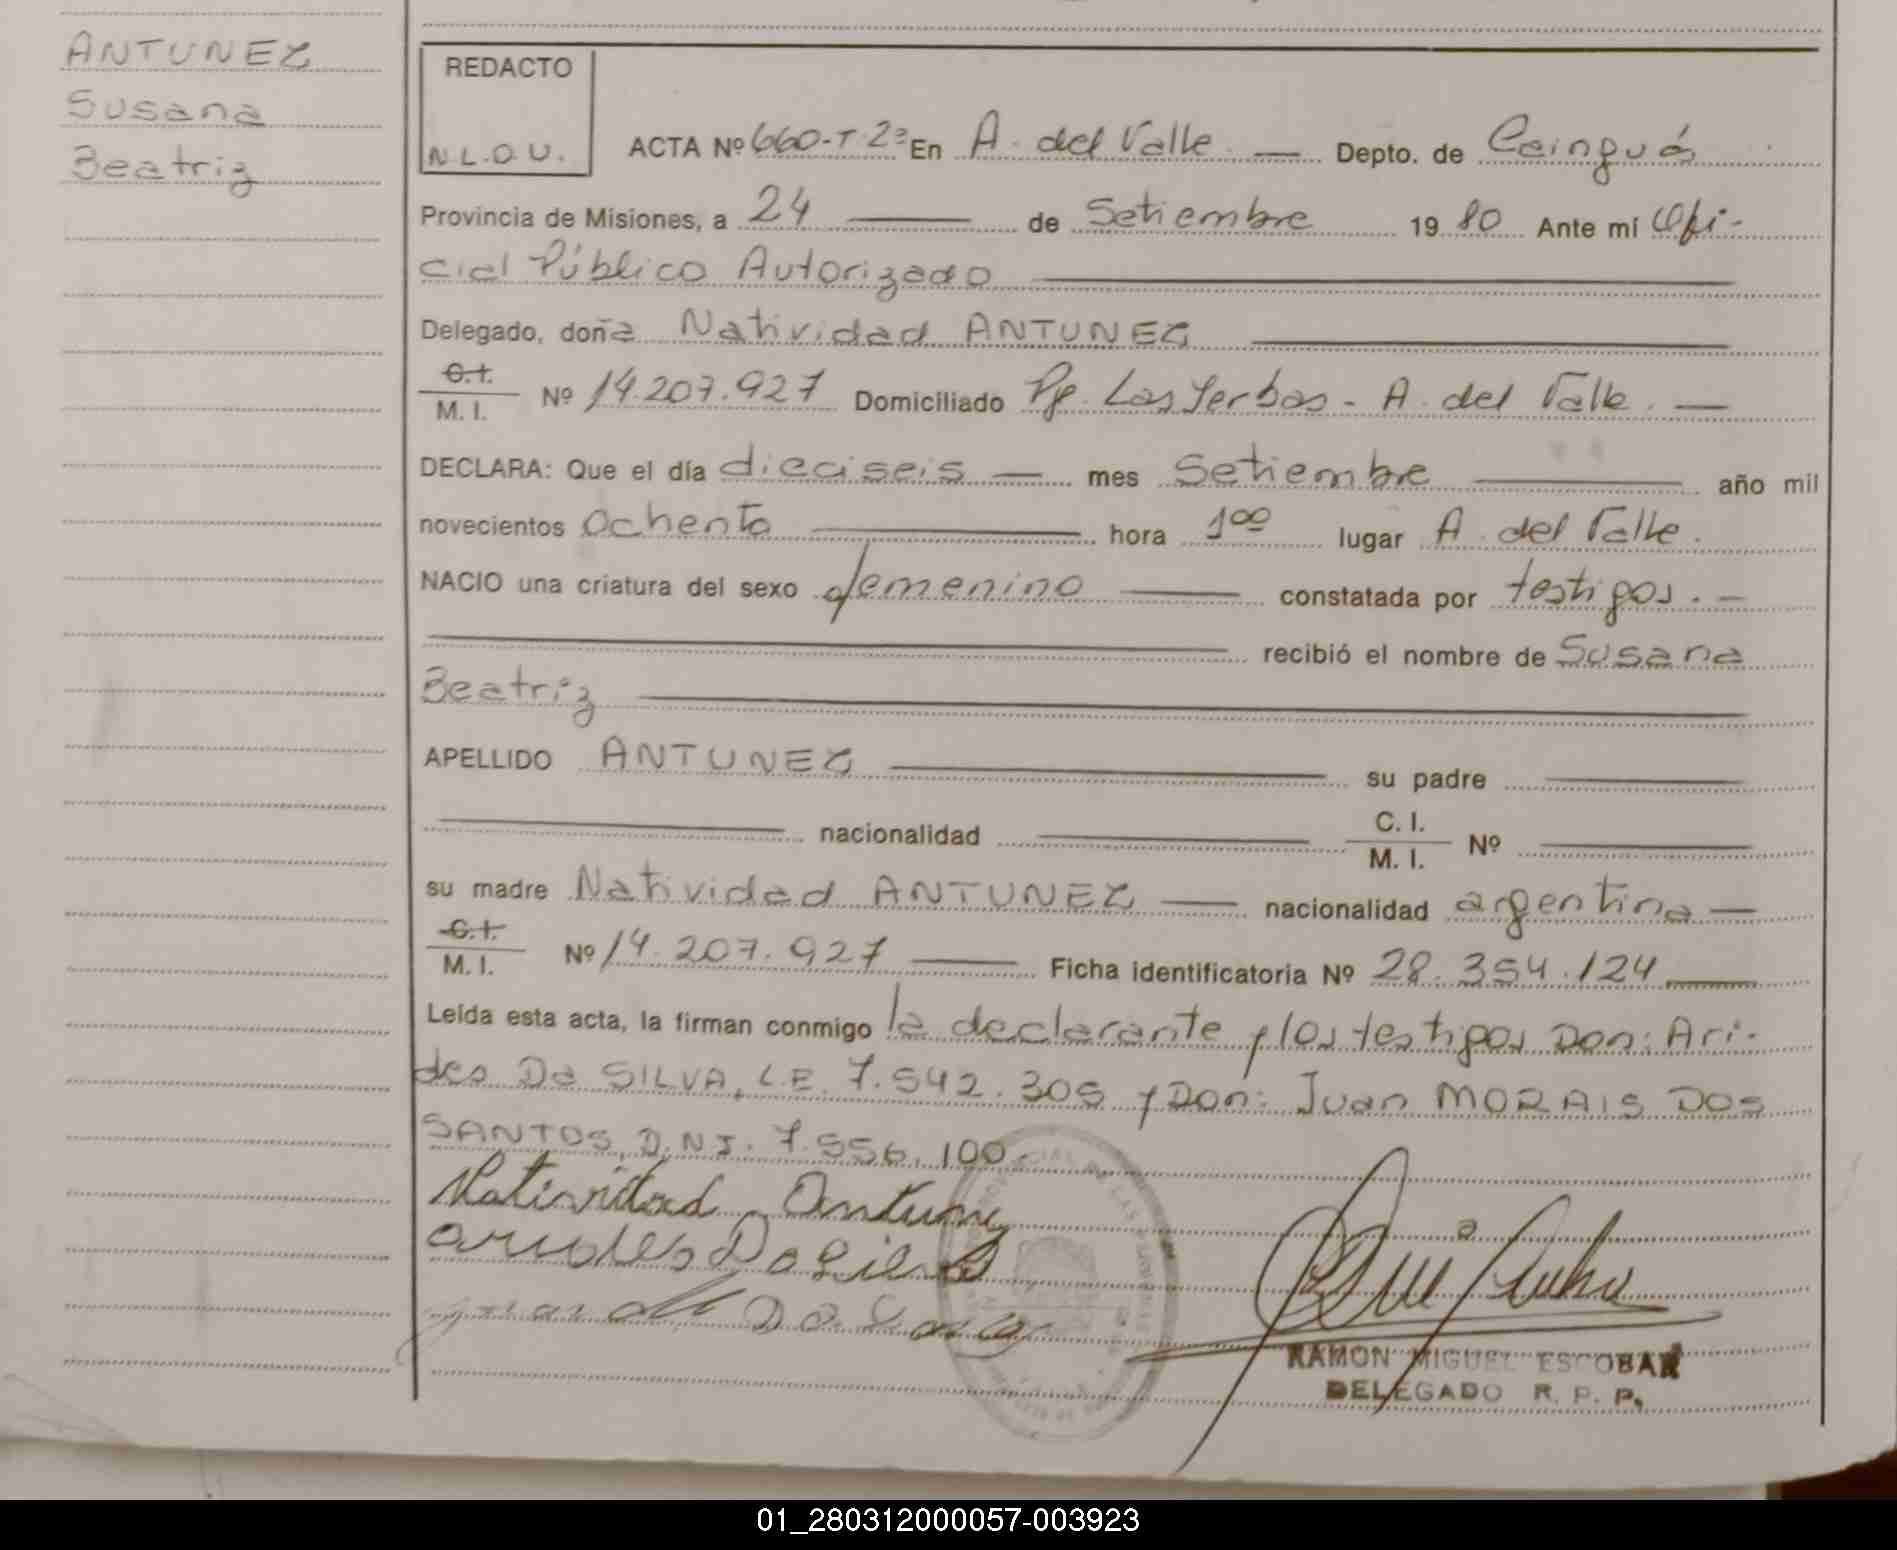 ANTUNEZ
Susana
Beatriz
REDACTO
N L.O.U.
ACTA Nº 660-T-2ª En A. del Valle — Depto. de Cainguás
Provincia de Misiones, a 24 — de Setiembre 19 80 Ante mí Ofi-
cial Público Autorizado
Delegado, doña Natividad ANTUNEZ
C.I. M. I. Nº 14.207.927 Domiciliado Pje. Las Yerbas - A. del Valle. —
DECLARA: Que el día dieciseis — mes Setiembre — año mil
novecientos Ochenta — hora 1⁰⁰ lugar A. del Valle.
NACIO una criatura del sexo femenino — constatada por testigos. —
recibió el nombre de Susana
Beatriz
APELLIDO ANTUNEZ — su padre —
nacionalidad — C. I. M. I. Nº —
su madre Natividad ANTUNEZ — nacionalidad argentina —
C.I. M. I. Nº 14.207.927 — Ficha identificatoria Nº 28.354.124
Leída esta acta, la firman conmigo la declarante y los testigos Don: Ari-
des Da SILVA, L.E. 7.542.305 y Don: Juan MORAIS DOS
SANTOS, D.N.I. 7.556.100.
Natividad Antunez
arides Da Silva
RAMON MIGUEL ESCOBAR
DELEGADO R. P. P.
01_280312000057-003923